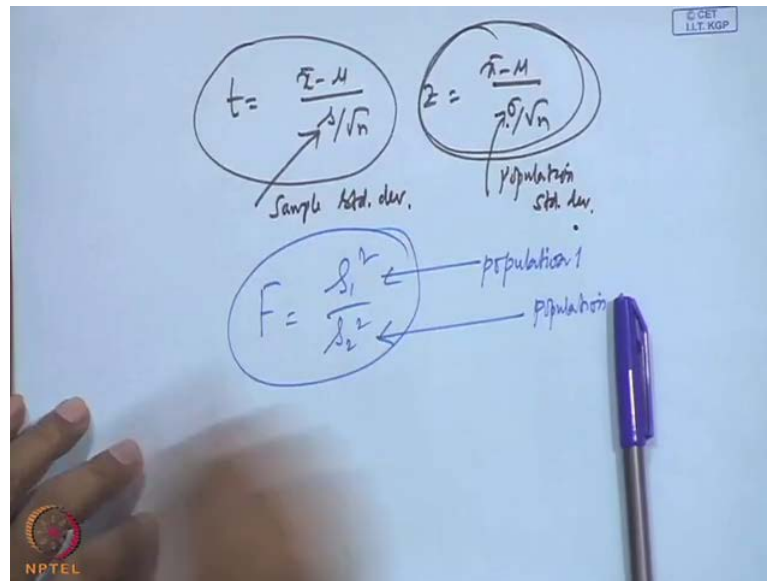 © CET
I.I.T. KGP
t = x̄ - μ / s/√n
z = x̄ - μ / σ/√n
Sample Std. dev.
Population Std. dev.
F = s₁² / s₂²
population 1
population
NPTEL